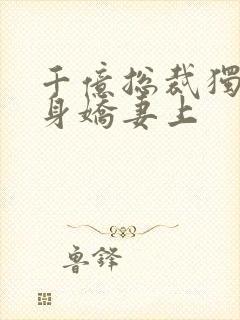 千億總裁獨
身嬌妻上
魯鋒